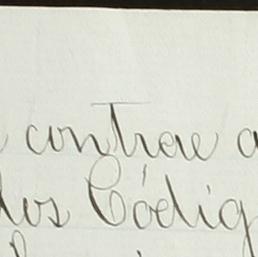 contrae a
des Códig